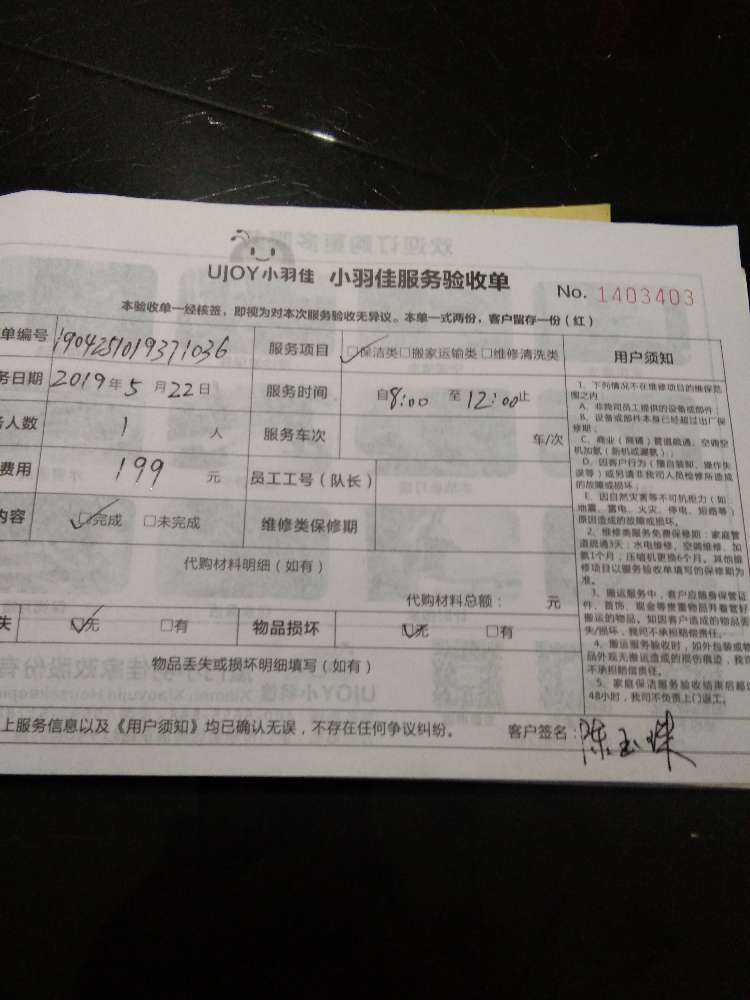 UJOY小羽佳 小羽佳服务验收单 No. 1403403
本验收单一经核签，即视为对本次服务验收无异议。本单一式两份，客户留存一份（红）
单编号 190425101937036 服务项目 □保洁类□搬家运输类□维修清洗类 用户须知
务日期 2019年5月22日 服务时间 自8:00 至12:00止
务人数 1 人 服务车次 车/次
费用 199 元 员工工号（队长）
内容 □完成 □未完成 维修类保修期
代购材料明细（如有）
代购材料总额： 元
失 □无 □有 物品损坏 □无 □有
物品丢失或损坏明细填写（如有）
上服务信息以及《用户须知》均已确认无误，不存在任何争议纠纷。 客户签名：陈玉珠
1、下列情况不在维修项目的维保范
围之内
A、非我司员工提供的设备或部件；
B、设备或部件本身已经超过出厂保
修期；
C、商业（商铺）管道疏通，空调空
机加氨（新机或漏氨）；
D、因客户行为（擅自装卸、操作失
误等）或另请非我司人员检修所造成
的故障或损坏；
E、因自然灾害等不可抗拒力（如
地震、雷电、火灾、停电、短路等）
原因造成的故障或损坏。
2、维修类服务免费保修期：家庭管
道疏通3天；水电维修、空调维修、加
氨1个月；压缩机更换6个月。其他维
修项目以服务验收单填写的保修期为
准。
3、搬运服务中，客户应随身保管证
件、首饰、现金等贵重物品并看管好
搬运的物品。如因客户造成的物品丢
失/损坏，我司不承担赔偿责任。
4、搬运服务验收时，如外包装或物
品外观无搬运造成的损伤痕迹，我司
不承担赔偿责任。
5、家庭保洁服务验收结束后超过
48小时，我司不负责上门返工。
欢迎订购更多服
UJOY小羽佳